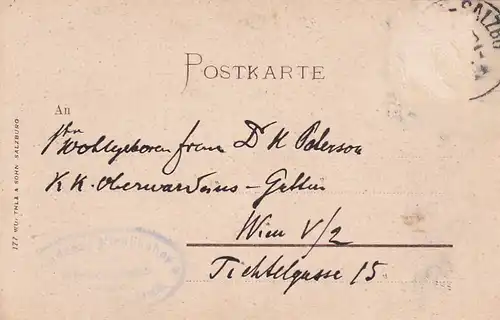 SALZBU
POSTKARTE
An
Ihr Wohlgeboren Frau Dr K Peterson
K K. Oberwardeins-Gattin
Wien V/2
Tichtelgasse 15
177 WÜRTHLE & SOHN, SALZBURG